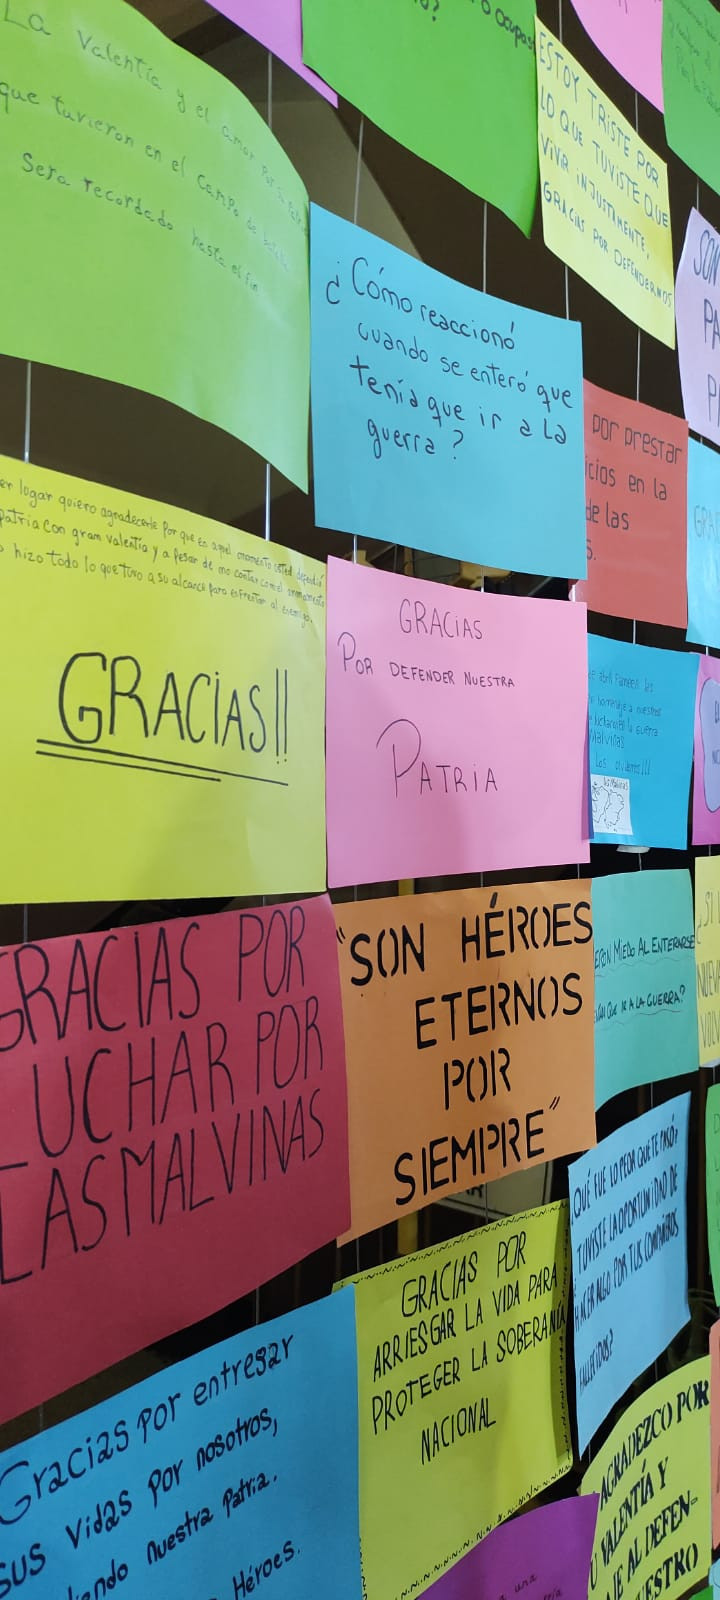 La valentía y el amor por la Patria
que tuvieron en el campo de batalla
Sera recordado hasta el fin
o ocupas
ESTOY TRISTE POR
LO QUE TUVISTE QUE
VIVIR INJUSTAMENTE,
GRACIAS POR DEFENDERNOS
SON
PA
¿Cómo reaccionó
cuando se enteró que
tenía que ir a la
guerra?
por prestar
icios en la
de las
s.
GRA
er lugar quiero agradecerle por que en aquel momento usted defendió
patria con gram valentía y a pesar de no contar con el armamento
o hizo todo lo que tuvo a su alcance para enfrentar al enemigo.
GRACIAS!!
GRACIAS
POR DEFENDER NUESTRA
PATRIA
de abril
homenaje a nuestros
la guerra
Malvinas
Los olvidemos!!!
Islas Malvinas
GRACIAS POR
LUCHAR POR
LAS MALVINAS
"SON HÉROES
ETERNOS
POR
SIEMPRE"
ERON MIEDO AL ENTERARSE
QUE IR A LA GUERRA?
¿SI
NUEVA
VOLV
GRACIAS POR
ARRIESGAR LA VIDA PARA
PROTEGER LA SOBERANÍA
NACIONAL
¿QUÉ FUE LO PEOR QUE TE PASÓ?
¿TUVISTE LA OPORTUNIDAD DE
HACER ALGO POR TUS COMPAÑEROS
FALLECIDOS?
Gracias por entregar
sus vidas por nosotros,
iendo nuestra patria.
Héroes.
AGRADEZCO POR
U VALENTÍA Y
AJE AL DEFEN-
UESTRO
una